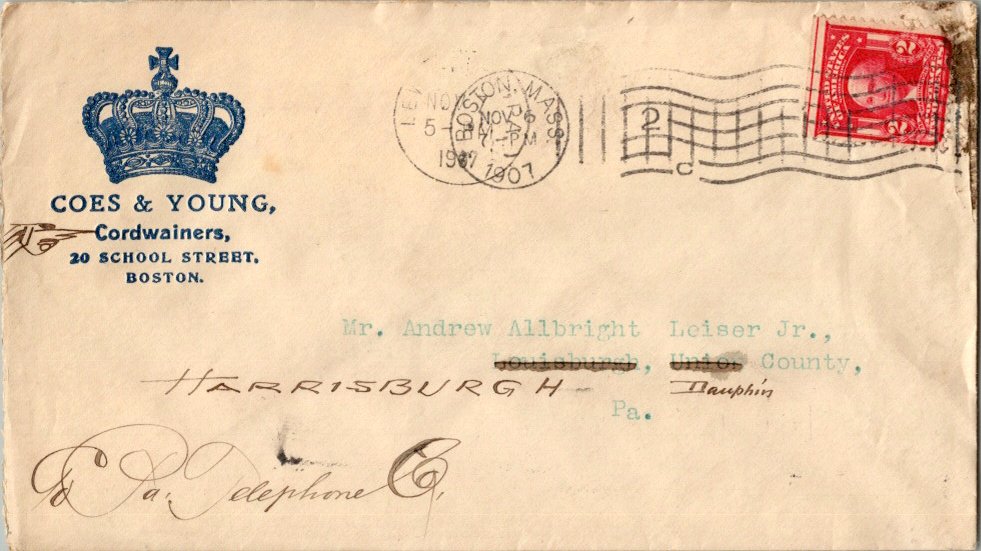 COES & YOUNG,
Cordwainers,
20 SCHOOL STREET.
BOSTON.
NO
5-
1907
BOSTON, MASS
NOV 6
PM
1907
2
C
2
Mr. Andrew Allbright Leiser Jr.,
Louisburgh, Union County,
HARRISBURGH Dauphin
Pa.
Pa. Telephone Co.